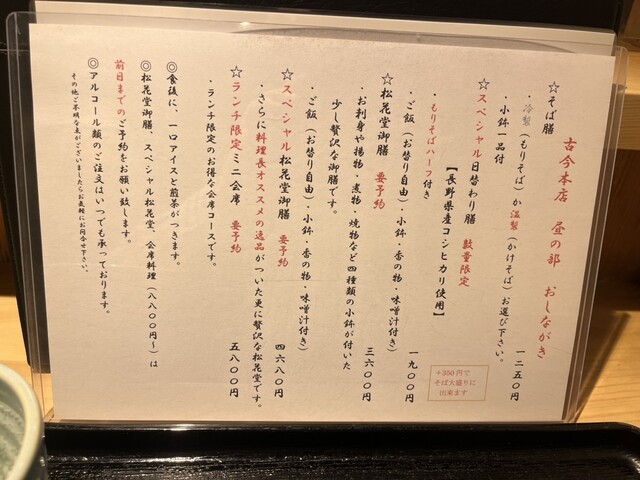 古今本店　昼の部　おしながき
☆そば膳　一二五〇円
・冷製（もりそば）か温製（かけそば）お選び下さい。
・小鉢一品付
☆スペシャル日替わり膳　数量限定　一九〇〇円
【長野県産コシヒカリ使用】
・もりそばハーフ付き
・ご飯（お替り自由）・小鉢・香の物・味噌汁付き）
☆松花堂御膳　要予約　三六〇〇円
・お刺身や揚物・煮物・焼物など四種類の小鉢が付いた
少し贅沢な御膳です。
・ご飯（お替り自由）・小鉢・香の物・味噌汁付き）
☆スペシャル松花堂御膳　要予約　四六八〇円
・さらに料理長オススメの逸品がついた更に贅沢な松花堂です。
☆ランチ限定ミニ会席　要予約　五八〇〇円
・ランチ限定のお得な会席コースです。
◎食後に、一口アイスと煎茶がつきます。
◎松花堂御膳、スペシャル松花堂、会席料理（八八〇〇円～）は
前日までのご予約をお願い致します。
◎アルコール類のご注文はいつでも承っております。
その他ご不明な点がございましたらお気軽にお問合せ下さい。
＋350円で
そば大盛りに
出来ます